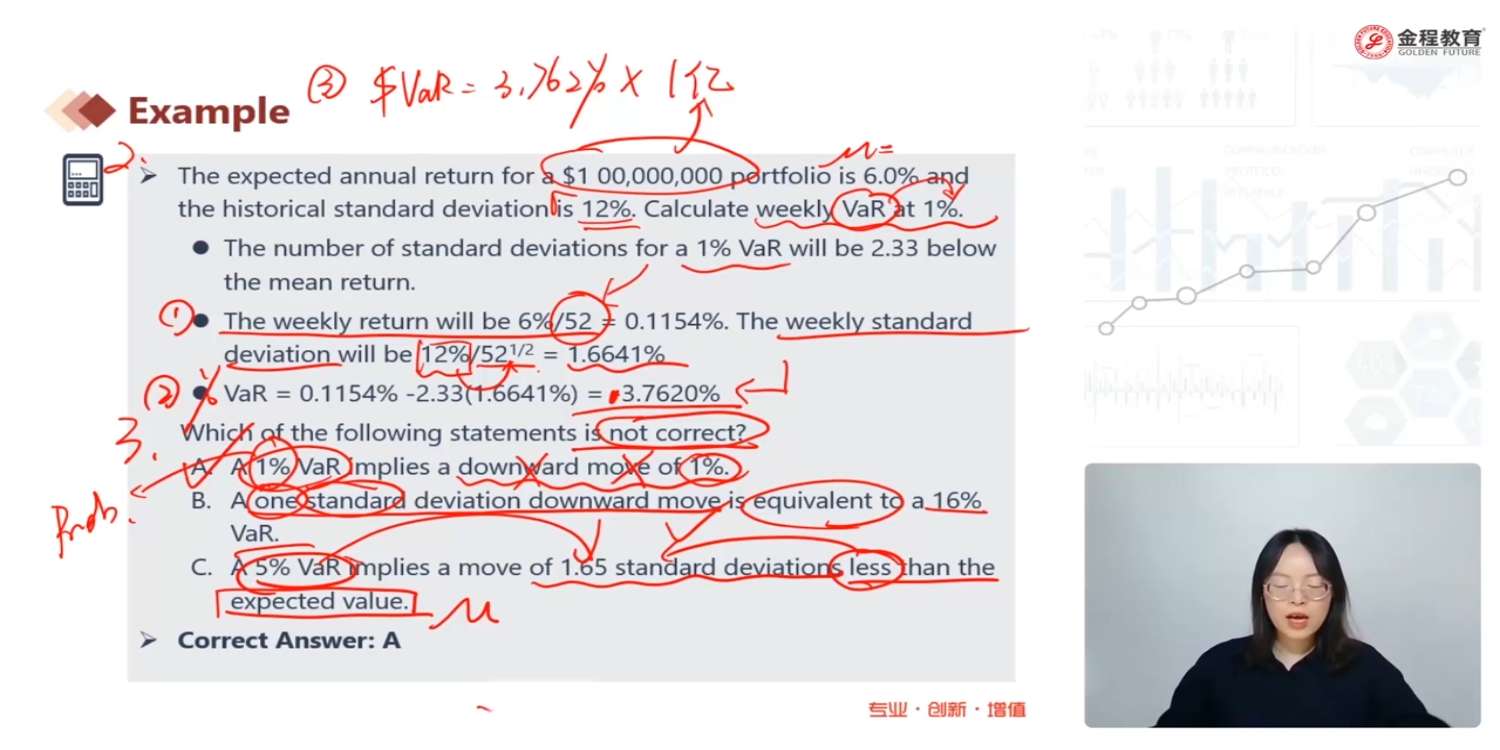 金程教育
GOLDEN FUTURE
③ $VaR = 3.762% × 1亿
Example
2.
μ=
The expected annual return for a $1 00,000,000 portfolio is 6.0% and
the historical standard deviation is 12%. Calculate weekly VaR at 1%.
● The number of standard deviations for a 1% VaR will be 2.33 below
the mean return.
① ● The weekly return will be 6%/52 = 0.1154%. The weekly standard
deviation will be 12%/52^1/2 = 1.6641%
② ● VaR = 0.1154% -2.33(1.6641%) = -3.7620%
3.
Which of the following statements is not correct?
A. A 1% VaR implies a downward move of 1%.
Prob.
B. A one standard deviation downward move is equivalent to a 16%
VaR.
C. A 5% VaR implies a move of 1.65 standard deviations less than the
expected value. μ
Correct Answer: A
专业·创新·增值